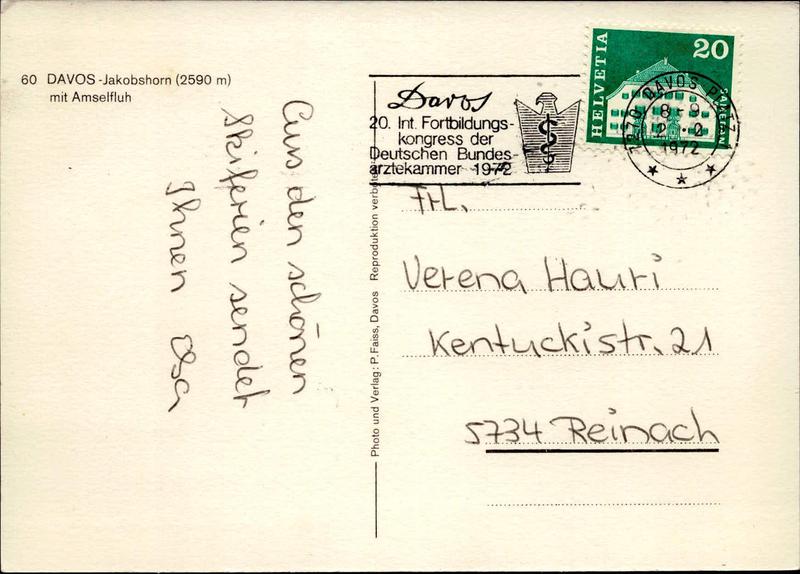 60 DAVOS-Jakobshorn (2590 m)
mit Amselfluh
Aus den schönen
Skiferien sendet
Ihnen
Photo und Verlag: P. Faiss, Davos Reproduktion verboten
Davos
20. Int. Fortbildungs-
kongress der
Deutschen Bundes-
ärztekammer 1972
HELVETIA
20
DAVOS PLATZ 1
8-9
1972
Frl.
Verena Hauri
Kentuckistr. 21
5734 Reinach